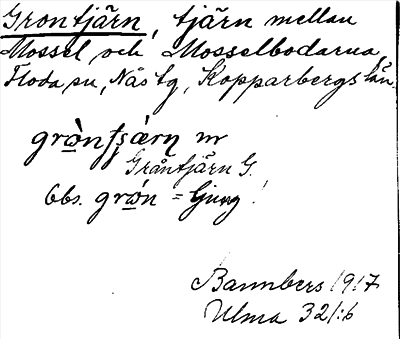 Grontjärn, tjärn mellan
Mossel och Mosselbodarna,
Floda sn, Näs tg, Kopparbergs län.
grò̠nʃʂæ̀rn nr
Gråntjärn G.
Obs. gró̠n = ljung!
Bannbers 1917
Ulma 321:6